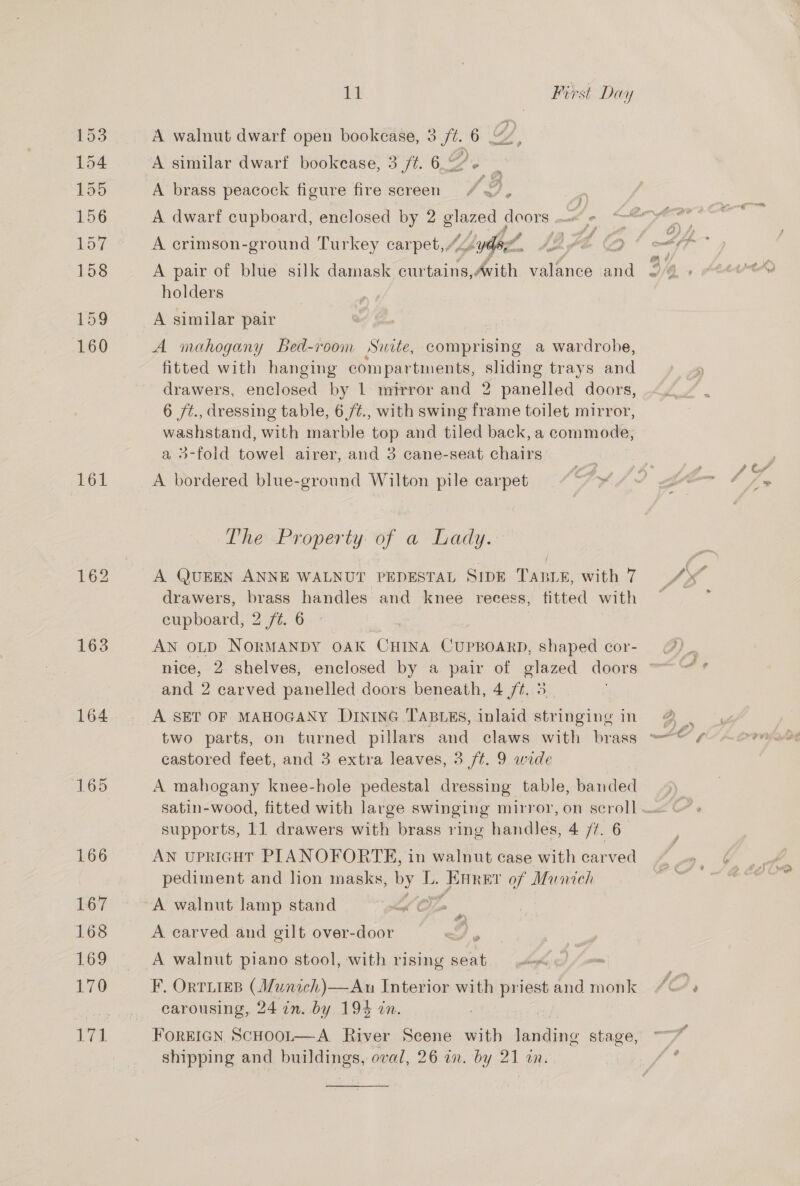 11 First Day
153 A walnut dwarf open bookcase, 3 ft. 6
154 A similar dwarf bookcase, 3 ft. 6
155 A brass peacock figure fire screen
156 A dwarf cupboard, enclosed by 2 glazed doors
157 A crimson-ground Turkey carpet,
158 A pair of blue silk damask curtains, with valance and
holders
159 A similar pair
160 A mahogany Bed-room Suite, comprising a wardrobe,
fitted with hanging compartments, sliding trays and
drawers, enclosed by 1 mirror and 2 panelled doors,
6 ft., dressing table, 6 ft., with swing frame toilet mirror,
washstand, with marble top and tiled back, a commode,
a 3-fold towel airer, and 3 cane-seat chairs
161 A bordered blue-ground Wilton pile carpet
The Property of a Lady.
162 A QUEEN ANNE WALNUT PEDESTAL SIDE TABLE, with 7
drawers, brass handles and knee recess, fitted with
cupboard, 2 ft. 6
163 AN OLD NORMANDY OAK CHINA CUPBOARD, shaped cor-
nice, 2 shelves, enclosed by a pair of glazed doors
and 2 carved panelled doors beneath, 4 ft. 3
164 A SET OF MAHOGANY DINING TABLES, inlaid stringing in
two parts, on turned pillars and claws with brass
castored feet, and 3 extra leaves, 3 ft. 9 wide
165 A mahogany knee-hole pedestal dressing table, banded
satin-wood, fitted with large swinging mirror, on scroll
supports, 11 drawers with brass ring handles, 4 ft. 6
166 AN UPRIGHT PIANOFORTE, in walnut case with carved
pediment and lion masks, by L. EHRET of Munich
167 A walnut lamp stand
168 A carved and gilt over-door
169 A walnut piano stool, with rising seat
170 F. ORTLIEB (Munich)—An Interior with priest and monk
carousing, 24 in. by 19½ in.
171 FOREIGN SCHOOL—A River Scene with landing stage,
shipping and buildings, oval, 26 in. by 21 in.